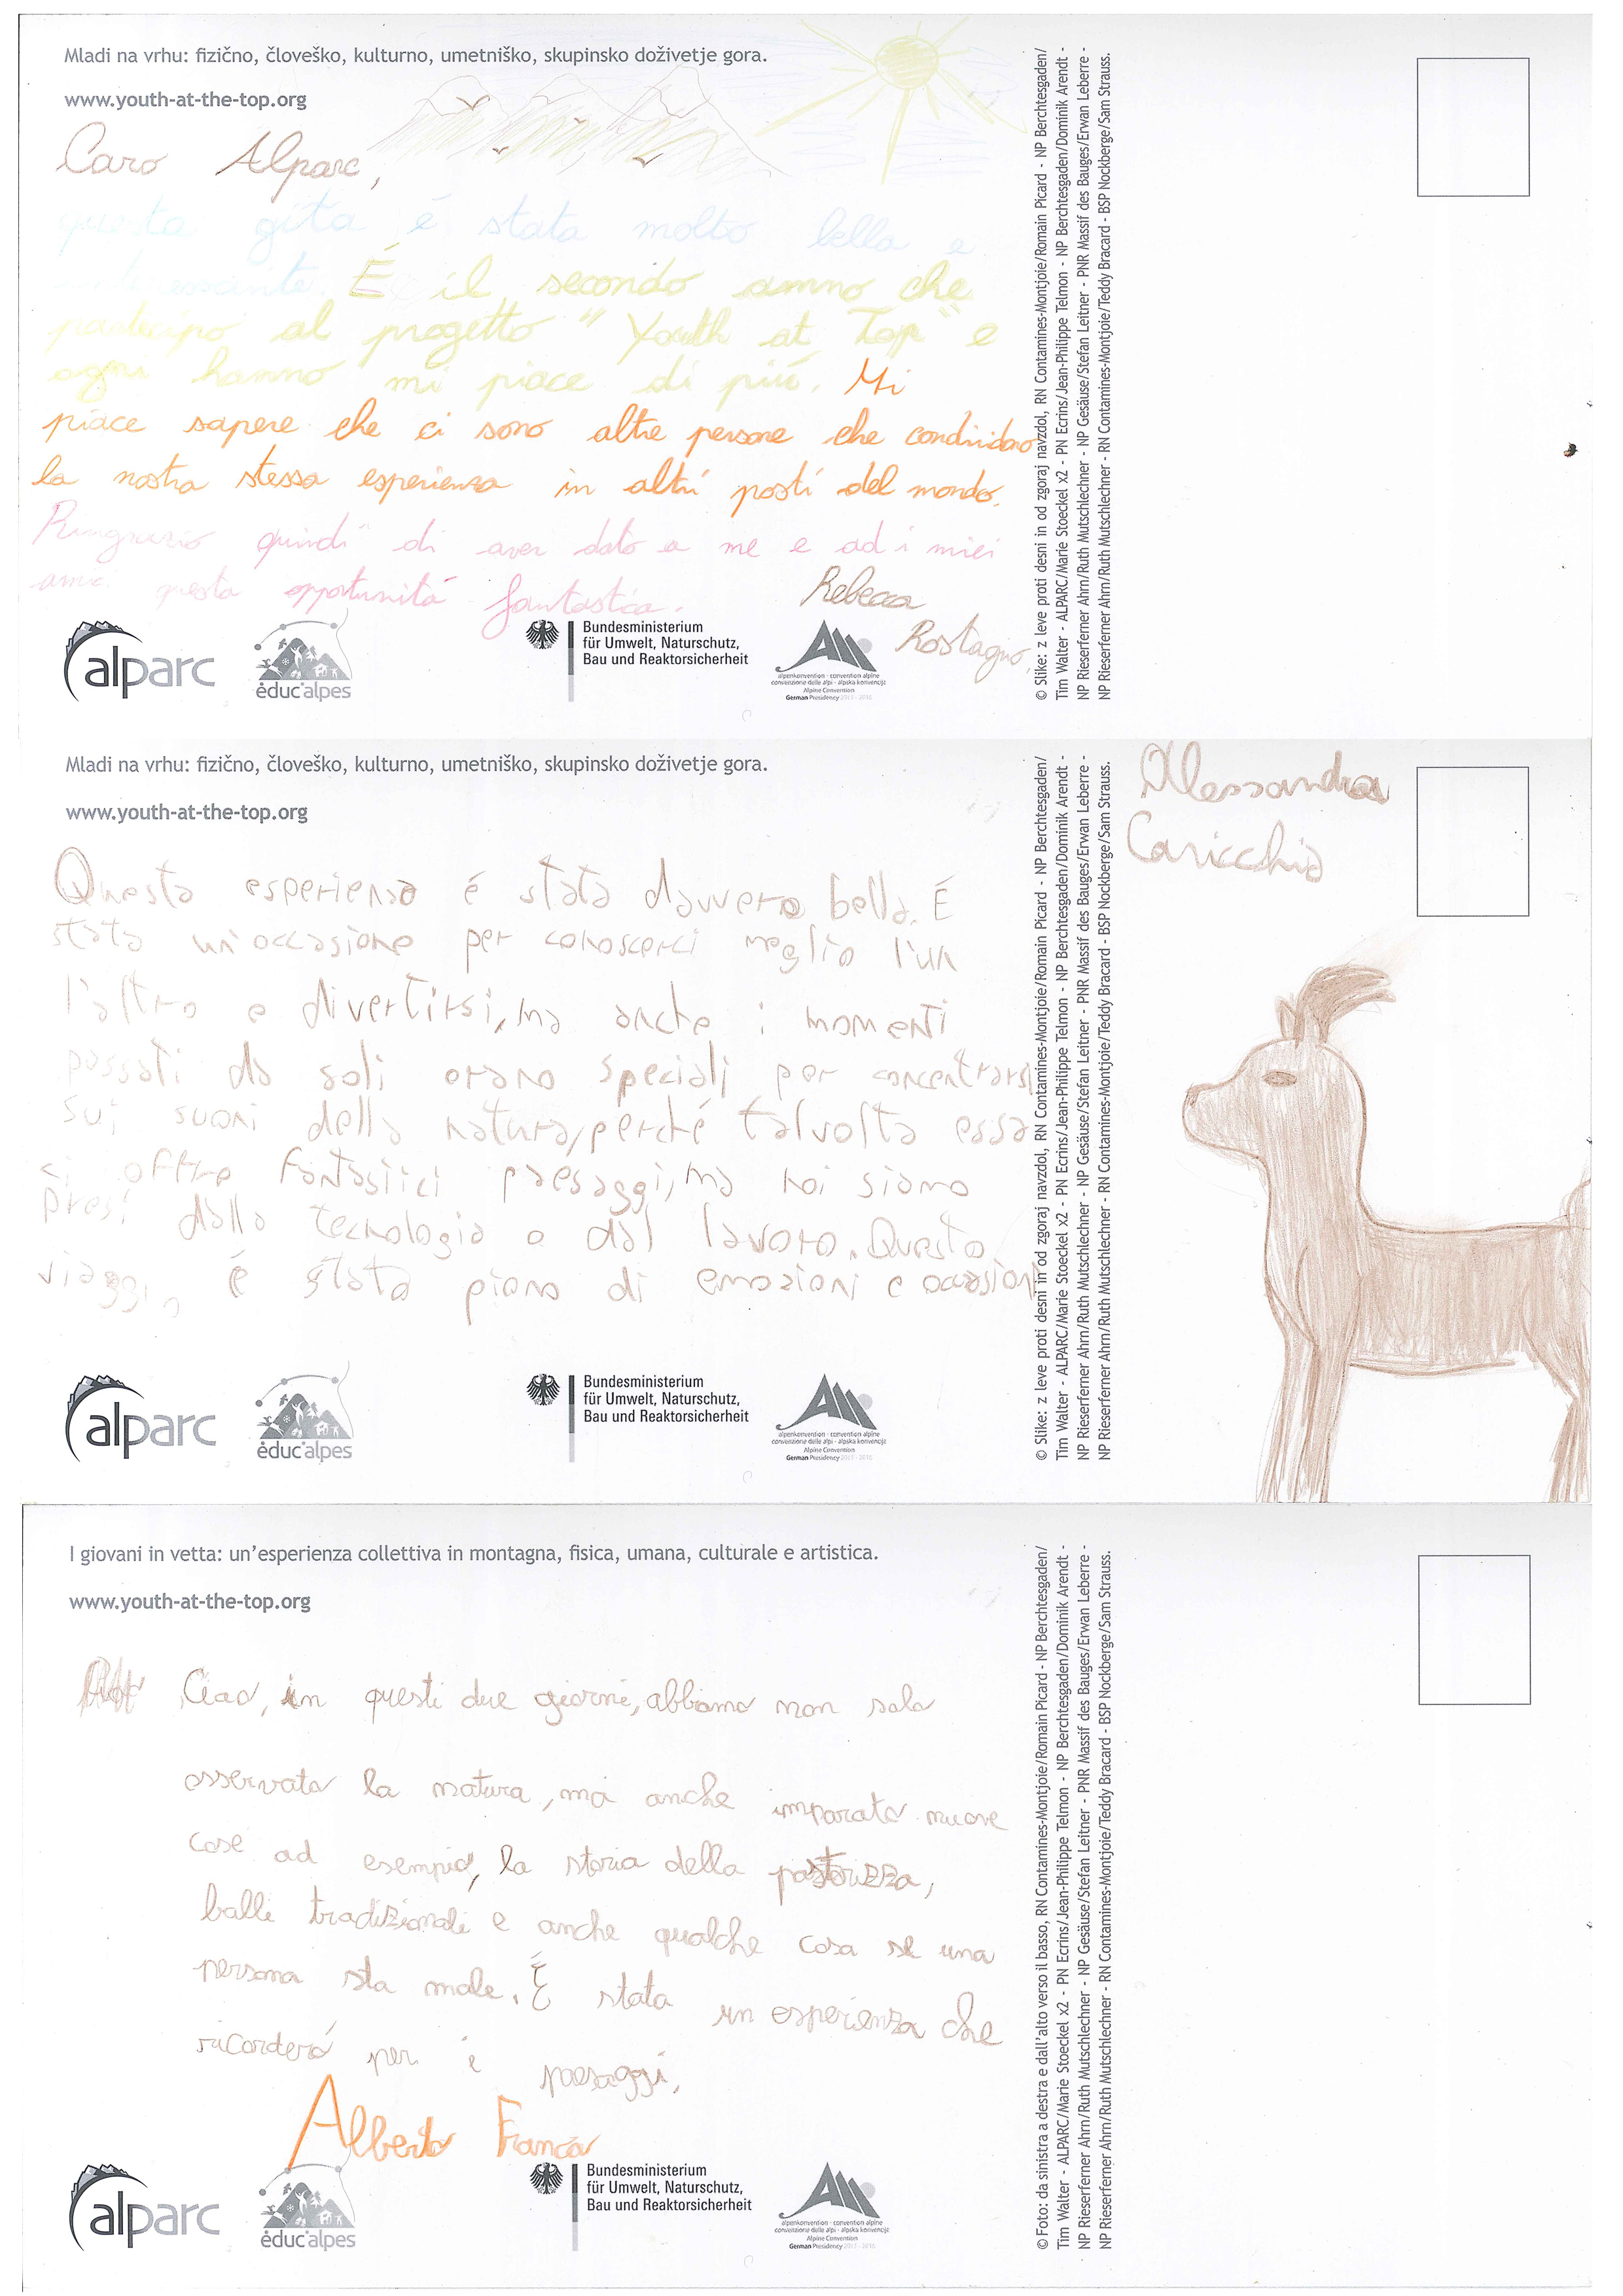 Mladi na vrhu: fizično, človeško, kulturno, umetniško, skupinsko doživetje gora.
www.youth-at-the-top.org
Caro Alparc,
questa gita é stata molto bella e
interessante. É il secondo anno che
partecipo al progetto "Youth at Top" e
ogni hanno mi piace di piú. Mi
piace sapere che ci sono altre persone che condividono
la nostra stessa esperienza in altri posti del mondo.
Ringrazio quindi di aver dato a me e ad i miei
amici questa opportunitá fantastica.
Rebecca
Rostagno
alparc
éduc'alpes
Bundesministerium
für Umwelt, Naturschutz,
Bau und Reaktorsicherheit
alpenkonvention · convention alpine
convenzione delle alpi · alpska konvencija
Alpine Convention
German Presidency 2015 - 2016
© Slike: z leve proti desni in od zgoraj navzdol, RN Contamines-Montjoie/Romain Picard - NP Berchtesgaden/
Tim Walter - ALPARC/Marie Stoeckel x2 - PN Ecrins/Jean-Philippe Telmon - NP Berchtesgaden/Dominik Arendt -
NP Rieserferner Ahrn/Ruth Mutschlechner - NP Gesäuse/Stefan Leitner - PNR Massif des Bauges/Erwan Leberre -
NP Rieserferner Ahrn/Ruth Mutschlechner - RN Contamines-Montjoie/Teddy Bracard - BSP Nockberge/Sam Strauss.
Mladi na vrhu: fizično, človeško, kulturno, umetniško, skupinsko doživetje gora.
www.youth-at-the-top.org
Questa esperienza é stata davvero bella. É
stata un'occasione per conoscerci meglio l'un
l'altro e divertirsi, ma anche i momenti
passati da soli erano speciali per concentrarsi
sui suoni della natura, perché talvolta essa
ci offre fantastici paesaggi, ma noi siamo
presi dalla tecnologia o dal lavoro. Questo
viaggio é stato pieno di emozioni e occasioni
alparc
éduc'alpes
Bundesministerium
für Umwelt, Naturschutz,
Bau und Reaktorsicherheit
alpenkonvention · convention alpine
convenzione delle alpi · alpska konvencija
Alpine Convention
German Presidency 2015 - 2016
© Slike: z leve proti desni in od zgoraj navzdol, RN Contamines-Montjoie/Romain Picard - NP Berchtesgaden/
Tim Walter - ALPARC/Marie Stoeckel x2 - PN Ecrins/Jean-Philippe Telmon - NP Berchtesgaden/Dominik Arendt -
NP Rieserferner Ahrn/Ruth Mutschlechner - NP Gesäuse/Stefan Leitner - PNR Massif des Bauges/Erwan Leberre -
NP Rieserferner Ahrn/Ruth Mutschlechner - RN Contamines-Montjoie/Teddy Bracard - BSP Nockberge/Sam Strauss.
Alessandra
Caricchio
I giovani in vetta: un'esperienza collettiva in montagna, fisica, umana, culturale e artistica.
www.youth-at-the-top.org
Ciao, in questi due giorni, abbiamo non solo
osservato la natura, ma anche imparato nuove
cose ad esempio, la storia della pastorizza,
balli tradizionali e anche qualche cosa se una
persona sta male. É stata un esperienza che
ricorderó per i paesaggi.
Alberto Franco
alparc
éduc'alpes
Bundesministerium
für Umwelt, Naturschutz,
Bau und Reaktorsicherheit
alpenkonvention · convention alpine
convenzione delle alpi · alpska konvencija
Alpine Convention
German Presidency 2015 - 2016
© Foto: da sinistra a destra e dall'alto verso il basso, RN Contamines-Montjoie/Romain Picard - NP Berchtesgaden/
Tim Walter - ALPARC/Marie Stoeckel x2 - PN Ecrins/Jean-Philippe Telmon - NP Berchtesgaden/Dominik Arendt -
NP Rieserferner Ahrn/Ruth Mutschlechner - NP Gesäuse/Stefan Leitner - PNR Massif des Bauges/Erwan Leberre -
NP Rieserferner Ahrn/Ruth Mutschlechner - RN Contamines-Montjoie/Teddy Bracard - BSP Nockberge/Sam Strauss.